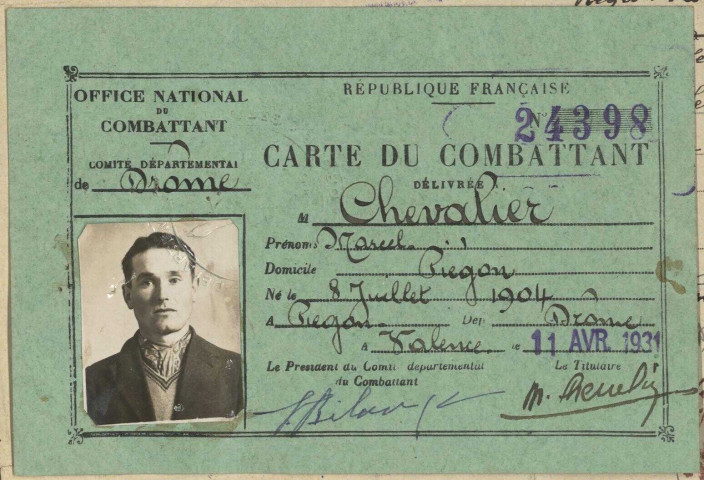 OFFICE NATIONAL
DU
COMBATTANT
COMITÉ DÉPARTEMENTAL
de Drôme
RÉPUBLIQUE FRANÇAISE
N° 24398
CARTE DU COMBATTANT
DÉLIVRÉE A
M Chevalier
Prénoms Marcel
Domicile Piégon
Né le 8 Juillet 1904
A Piégon Dép Drôme
A Valence le 11 AVR. 1931
Le Président du Comité départemental
du Combattant
Le Titulaire